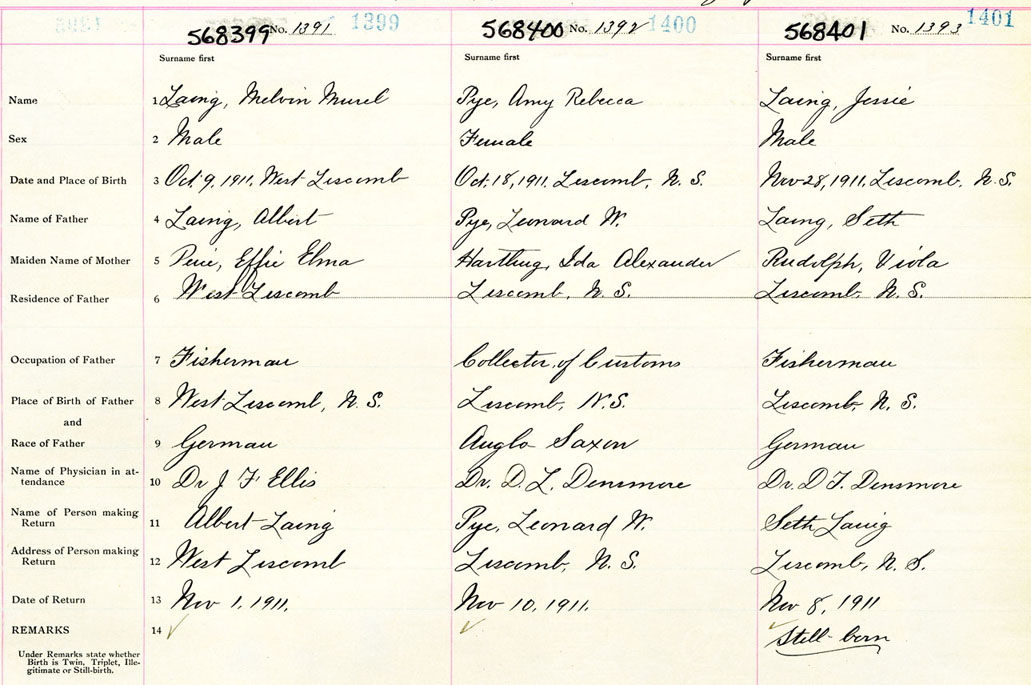 568399 No. 1391 1399 568400 No. 1392 1400 568401 No. 1393 1401
Surname first Surname first Surname first
Name 1 Laing, Melvin Murel Pye, Amy Rebecca Laing, Jessie
Sex 2 Male Female Male
Date and Place of Birth 3 Oct. 9, 1911, West Liscomb Oct. 18, 1911. Liscomb, N. S. Nov 28, 1911, Liscomb, N. S.
Name of Father 4 Laing, Albert Pye, Leonard W. Laing, Seth
Maiden Name of Mother 5 Effie Elma Hartling, Ida Alexander Rudolph, Viola
Residence of Father 6 West Liscomb Liscomb, N. S. Liscomb, N. S.
Occupation of Father 7 Fisherman Collector of Customs Fisherman
Place of Birth of Father 8 West Liscomb, N. S. Liscomb, N.S. Liscomb, N. S.
and
Race of Father 9 German Anglo Saxon German
Name of Physician in at-
tendance 10 Dr J F Ellis Dr. D. L. Densmore Dr. D T. Densmore
Name of Person making
Return 11 Albert Laing Pye, Leonard W. Seth Laing
Address of Person making
Return 12 West Liscomb Liscomb, N. S. Liscomb, N. S.
Date of Return 13 Nov 1, 1911. Nov 10, 1911. Nov 8, 1911
REMARKS 14 ✓ ✓ ✓ Still-born
Under Remarks state whether
Birth is Twin, Triplet, Ille-
gitimate or Still-birth.